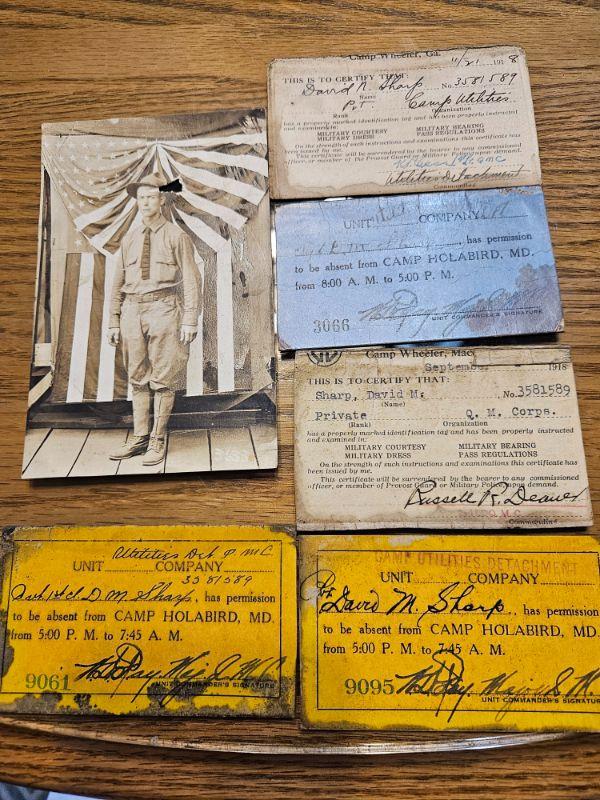 Camp Wheeler, Ga. 11/21 1918
THIS IS TO CERTIFY THAT:
David M. Sharp No. 3581589
Name
Pvt Camp Utilities.
Rank Organization
has a properly marked identification tag and has been properly instructed
and examined in:
MILITARY COURTESY MILITARY BEARING
MILITARY DRESS PASS REGULATIONS
On the strength of such instructions and examinations this certificate has
been issued by me.
This certificate will be surrendered by the bearer to any commissioned
officer, or member of the Provost Guard or Military Police upon demand.
Utilities Detachment
Commanding
UNIT COMPANY
, has permission
to be absent from CAMP HOLABIRD, MD.
from 8:00 A. M. to 5:00 P. M.
3066
UNIT COMMANDER'S SIGNATURE
Camp Wheeler, Mac
September 1918
THIS IS TO CERTIFY THAT:
Sharp, David M. No. 3581589
(Name)
Private Q. M. Corps.
(Rank) Organization
has a properly marked identification tag and has been properly instructed
and examined in:
MILITARY COURTESY MILITARY BEARING
MILITARY DRESS PASS REGULATIONS
On the strength of such instructions and examinations this certificate has
been issued by me.
This certificate will be surrendered by the bearer to any commissioned
officer, or member of Provost Guard or Military Police, upon demand.
Russell R. Deaver
Commanding
Utilities Det Q M C
UNIT COMPANY
3581589
D. M. Sharp, has permission
to be absent from CAMP HOLABIRD, MD.
from 5:00 P. M. to 7:45 A. M.
9061
UNIT COMMANDER'S SIGNATURE
CAMP UTILITIES DETACHMENT
UNIT COMPANY
David M. Sharp, has permission
to be absent from CAMP HOLABIRD, MD.
from 5:00 P. M. to 7:45 A. M.
9095
UNIT COMMANDER'S SIGNATURE